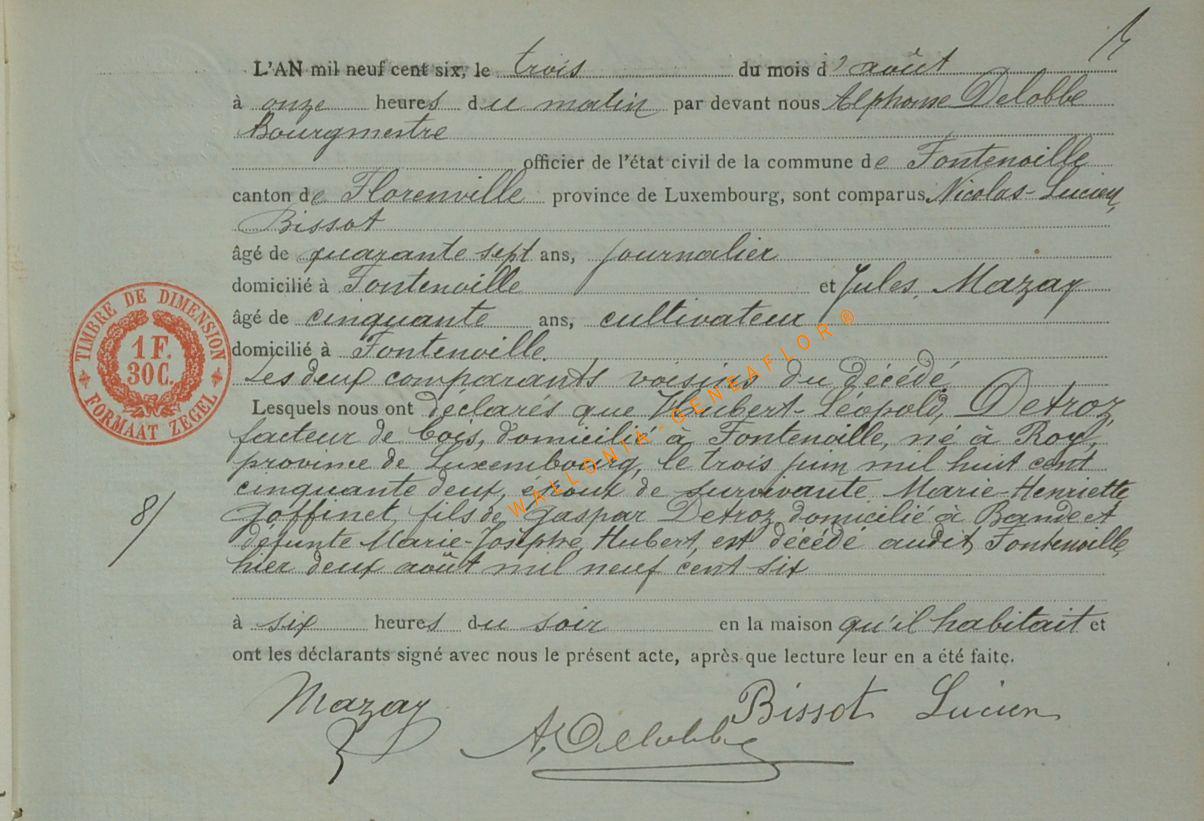 L'AN mil neuf cent six, le trois du mois d'août
à onze heures du matin par devant nous Alphonse Delobbe
Bourgmestre
officier de l'état civil de la commune de Fontenoille
canton de Florenville province de Luxembourg, sont comparus Nicolas-Lucien,
Bissot
âgé de quarante sept ans, journalier
domicilié à Fontenoille et Jules, Mazay
âgé de cinquante ans, cultivateur
domicilié à Fontenoille.
Les deux comparants voisins du décédé
Lesquels nous ont déclarés que Hubert-Léopold, Detroz,
facteur de bois, domicilié à Fontenoille, né à Roy,
province de Luxembourg, le trois juin mil huit cent
cinquante deux, époux de survivante Marie-Henriette
Goffinet, fils de Gaspar Detroz domicilié à Bande et
défunte Marie-Josèphe Hubert, est décédé audit Fontenoille
hier deux août mil neuf cent six
à six heures du soir en la maison qu'il habitait et
ont les déclarants signé avec nous le présent acte, après que lecture leur en a été faite.
Mazay
Bissot Lucien
A. Delobbe
8/
TIMBRE DE DIMENSION
1 F.
30 C.
FORMAAT ZEGEL
WALLONIA-GENEAFLOR ®